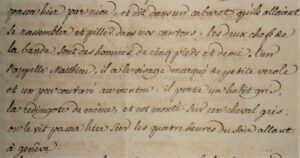 passa hier par nion, et dit dans un cabaret qu'ils allaient
se rassembler et piller dans nos cantons. les deux chefs de
la bande sont des hommes de cinq pieds et demi, l'un
s'appelle Matthieu, il a le visage marqué de petite verole
et un peu couturé au menton. il porte un habit gris
la redingotte de même, et est monté sur un cheval gris.
on le vit passer hier sur les quatre heures du soir allant
à genève.